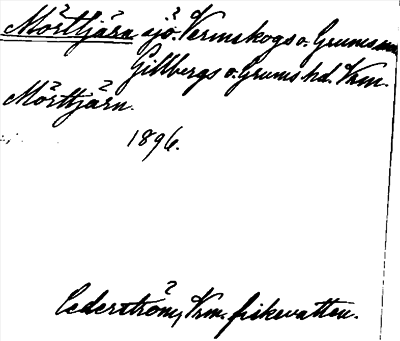 Mörttjärn sjö. Värmskogs o. Grums snr
Gillbergs o. Grums hd. Vrm.
Mörttjärn.
1896.
Cederström, Vrm. fiskevatten.